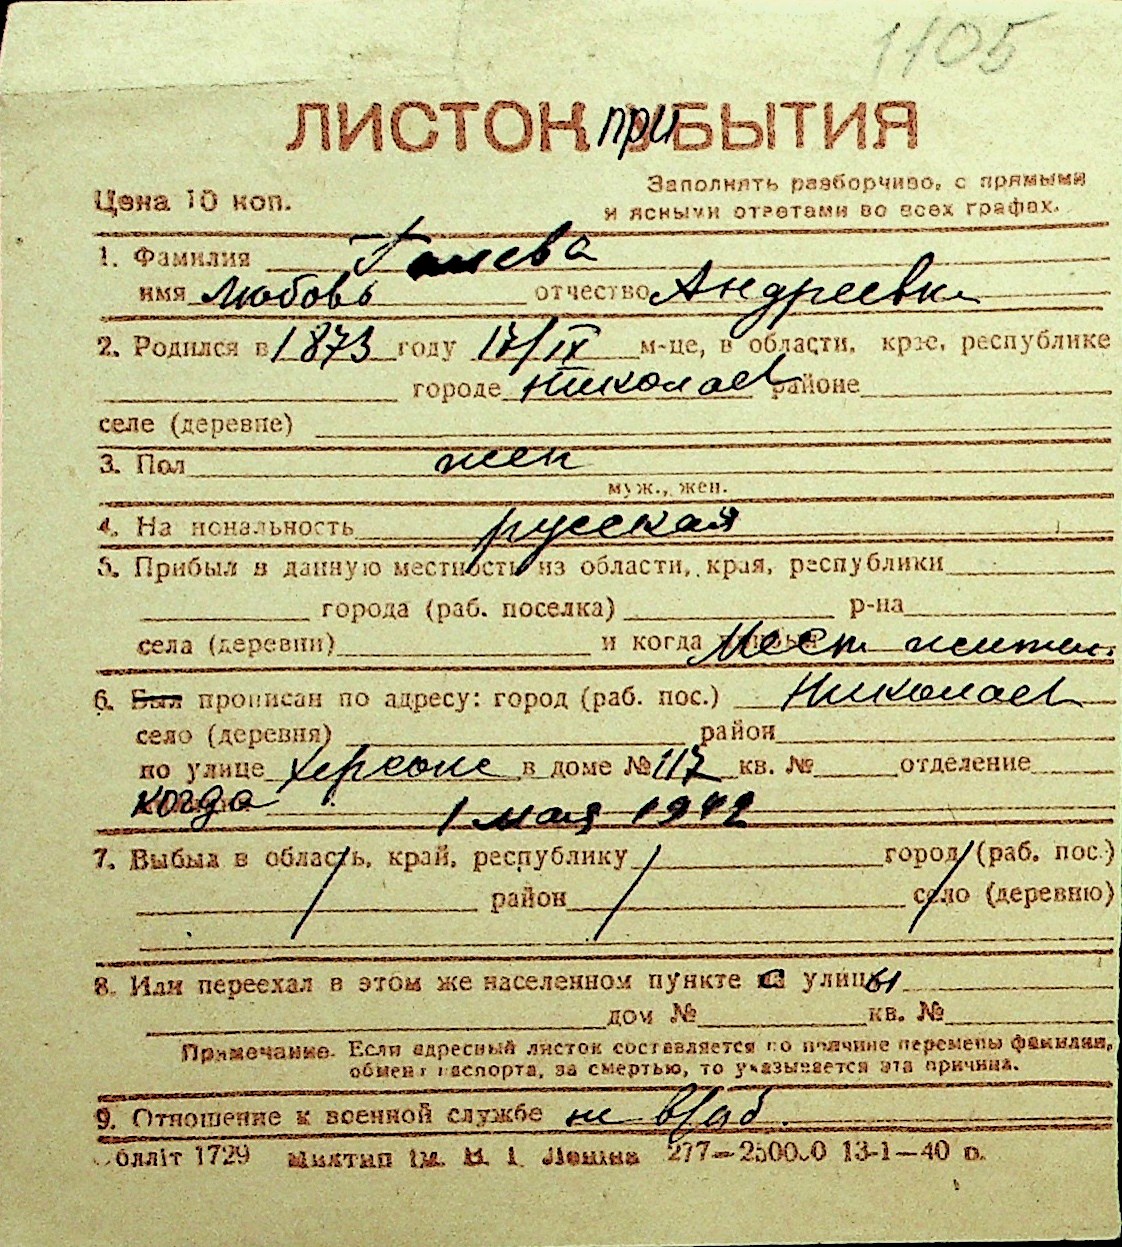 1105
ЛИСТОК ПРИБЫТИЯ
Цена 10 коп.
Заполнять разборчиво, с прямыми
и ясными ответами во всех графах.
1. Фамилия
имя Любовь отчество Андреевна
2. Родился в 1873 году 17/IX м-це, в области, крае, республике
городе Николаев районе
селе (деревне)
3. Пол жен
муж., жен.
4. Национальность русская
5. Прибыл в данную местность из области, края, республики
города (раб. поселка) р-на
села (деревни) и когда Мест. жител.
6. Был прописан по адресу: город (раб. пос.) Николаев
село (деревня) район
по улице Херсонс в доме № 117 кв. № отделение
когда 1 мая 1942
7. Выбыл в область, край, республику город (раб. пос.)
район село (деревню)
8. Или переехал в этом же населенном пункте с улицы
дом № кв. №
Примечание. Если адресный листок составляется по причине перемены фамилии,
обмен паспорта, за смертью, то указывается эта причина.
9. Отношение к военной службе не
Облліт 1729 ім. В. І. Леніна 277—25000 13-1—40 р.